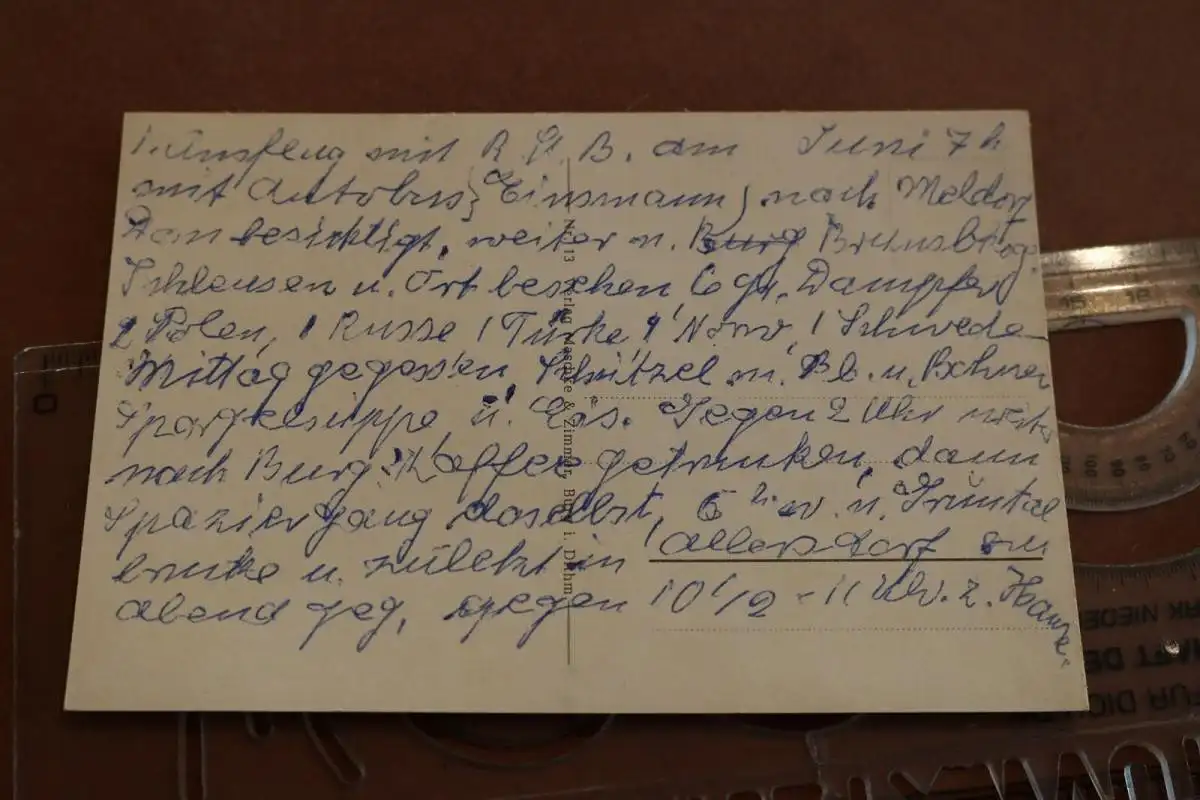 1. Ausflug mit R. B. am Juni 7 h
mit Autobus (Einsmann) nach Meldorf
Dom besichtigt, weiter n. Burg Brunsbüttg.
Schleusen u. Ort besehen, 6 gr. Dampfer
2 Polen, 1 Russe 1 Türke, 1 Norw, 1 Schwede
Mittag gegessen, Schnitzel m. Bl. u. Bohnen
Spargelsuppe u. Eis. Gegen 2 Uhr weiter
nach Burg. Kaffee getrunken, dann
Spaziergang daselbst, 6 w. n. Grüntal
brücke u. zuletzt in Albersdorf zu
abend geg, gegen 10 1/2 - 11 Uhr z. Hause.
Nr. 13 Verlag Maschke & Zimmer, Burg i. Dithm.